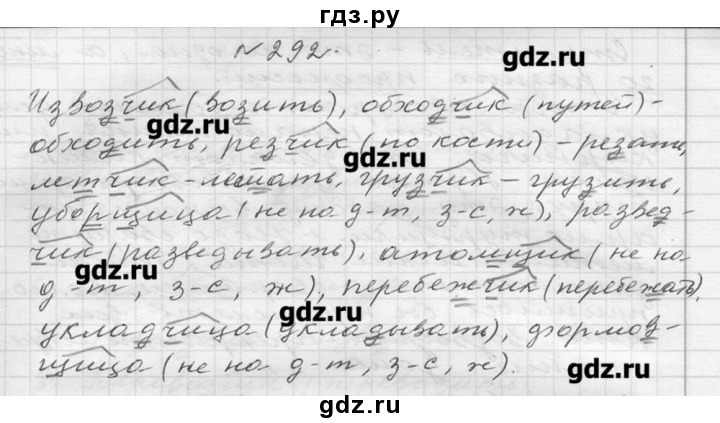 гдз.ру
№292.
gdz.ru
Извозчик (возить), обходчик (путей) -
gdz.ru
обходить, резчик (по кости) - резать,
gdz.ru
летчик - летать, грузчик - грузить,
уборщица (не на д-т, з-с, ж), развед-
чик (разведывать), атомщик (не на
gdz.ru
д-т, з-с, ж), перебежчик (перебежать),
gdz.ru
укладчица (укладывать), формов-
щица (не на д-т, з-с, ж).
gdz.ru
gdz.ru